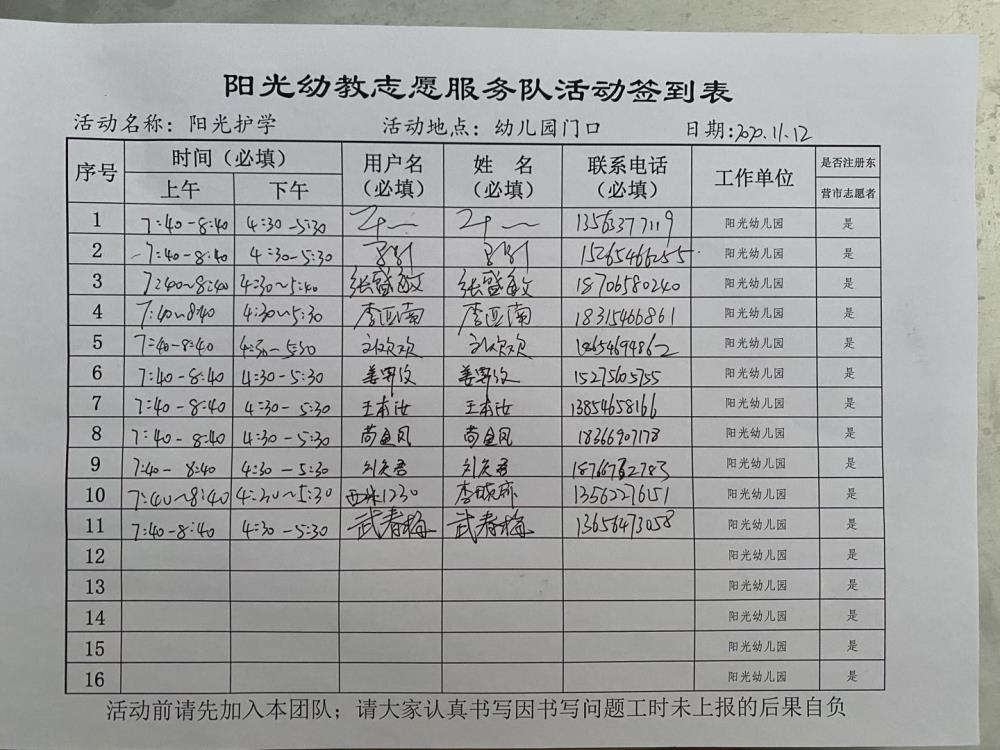 阳光幼教志愿服务队活动签到表
活动名称：阳光护学 活动地点：幼儿园门口 日期:2020.11.12
序号 时间（必填） 用户名（必填） 姓名（必填） 联系电话（必填） 工作单位 是否注册东营市志愿者
上午 下午
1 7:40-8:40 4:30-5:30 13563377119 阳光幼儿园 是
2 7:40-8:40 4:30-5:30 15265466255 阳光幼儿园 是
3 7:40~8:40 4:30~5:40 张盛敏 张盛敏 18706580240 阳光幼儿园 是
4 7:40~8:40 4:30~5:30 李亚南 李亚南 18315466861 阳光幼儿园 是
5 7:40-8:40 4:30-5:30 刘欢欢 刘欢欢 18654694862 阳光幼儿园 是
6 7:40-8:40 4:30-5:30 15275605755 阳光幼儿园 是
7 7:40-8:40 4:30-5:30 王本汝 王本汝 13854658166 阳光幼儿园 是
8 7:40-8:40 4:30-5:30 18366907178 阳光幼儿园 是
9 7:40-8:40 4:30-5:30 阳光幼儿园 是
10 7:40~8:40 4:30~5:30 13562276151 阳光幼儿园 是
11 7:40-8:40 4:30-5:30 武春梅 武春梅 13656473058 阳光幼儿园 是
12 阳光幼儿园 是
13 阳光幼儿园 是
14 阳光幼儿园 是
15 阳光幼儿园 是
16 阳光幼儿园 是
活动前请先加入本团队；请大家认真书写因书写问题工时未上报的后果自负